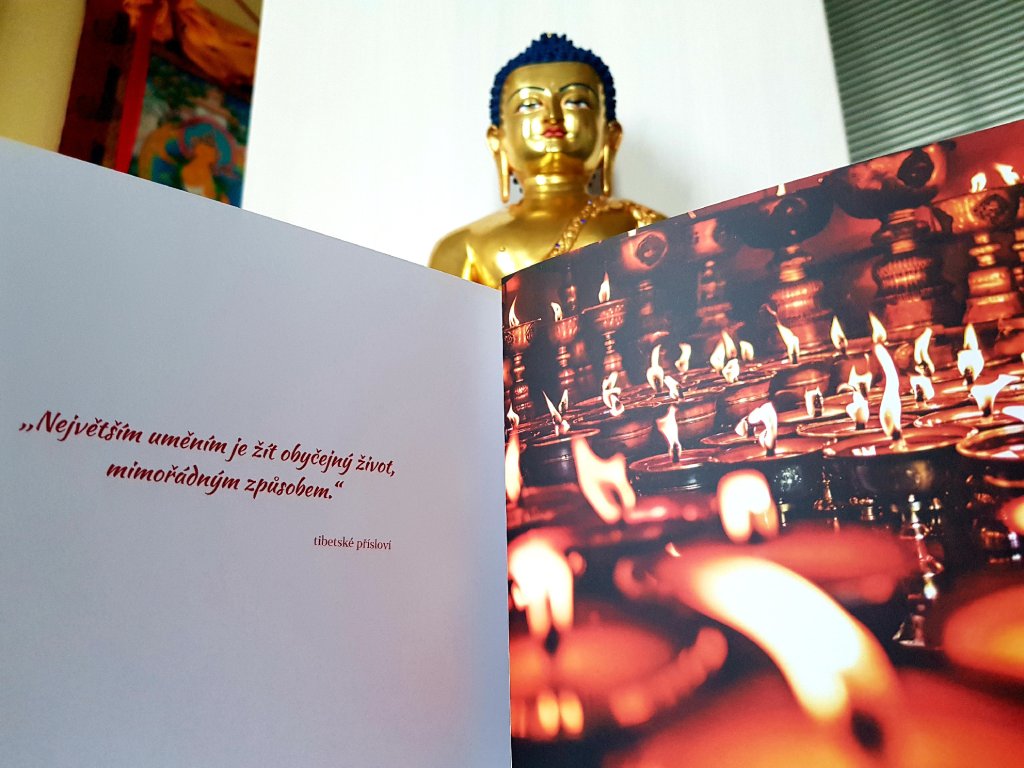 „Největším uměním je žít obyčejný život,
mimořádným způsobem.“
tibetské přísloví